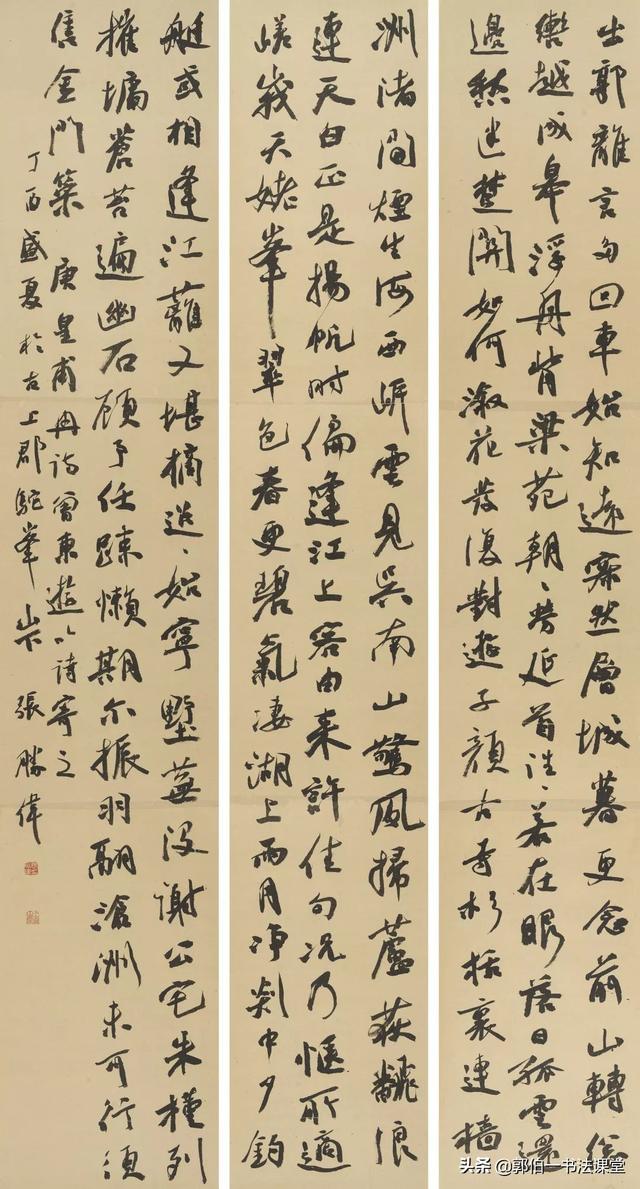 出郭離言多回車始知遠寂然層城暮更念前山轉總
轡越成皋浮舟背梁苑朝〻勞延首往〻若在眼落日孤雲還
邊愁迷楚關如何淑花發復對遊子顏古寺杉栝裏連檣
洲渚間煙生海西岍雲見吳南山驚風掃蘆荻翻浪
連天白正是揚帆時偏逢江上客由來許佳句況乃愜所適
嵯峩天姥峯翠色春更碧氣淒湖上雨月淨剡中夕釣
艇或相逢江蘺又堪摘迢〻始寧墅蕪沒謝公宅朱槿列
摧墉蒼苔遍幽石顧予任疎懶期尔振羽翮滄洲未可行須
售金門策 唐皇甫冉詩曾東遊以詩寄之
丁酉盛夏於古上郡駝峯山下張勝偉
头条 @郭伯一书法课堂